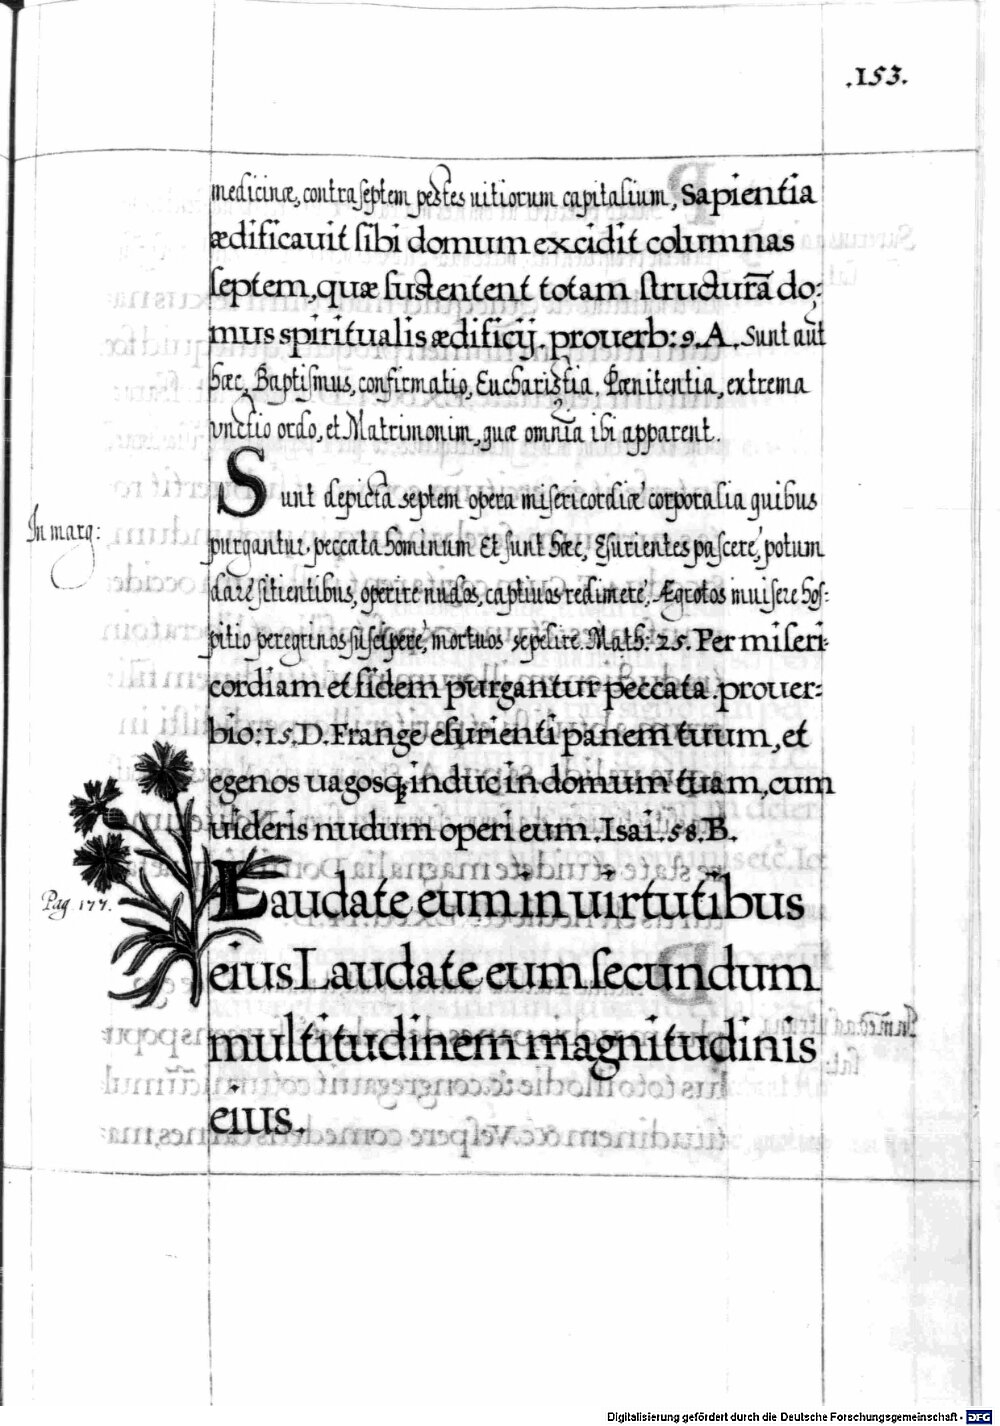 .153.
medicinæ, contra septem pestes uitiorum capitalium, Sapientia
ædificavit sibi domum excidit columnas
septem, quæ sustentent totam structurã do:
mus spiritualis ædificij. prouerb: 9. A. Sunt aũt
hæc, Baptismus, confirmatio, Eucharistia, Pœnitentia, extrema
vnctio ordo, et Matrimonim, quæ omnia ibi apparent.
Sunt depicta septem opera misericordiæ corporalia quibus
In marg:
purgantur peccata hominum Et sunt hæc, Esurientes pascere, potum
dare sitientibus, operire nudos, captiuos redimere, Ægrotos inuisere hos:
pitio peregrinos suscipere, mortuos sepelire. Math: 25. Per miseri:
cordiam et fidem purgantur peccata. prouer:
bio: 15. D. Frange esurienti panem tuum, et
egenos uagosq; induc in domum tuam, cum
uideris nudum operi eum. Isai. 58. B.
Laudate eum in uirtutibus
Pag 177.
eius Laudate eum secundum
multitudinem magnitudinis
eius.
Digitalisierung gefördert durch die Deutsche Forschungsgemeinschaft - DFG